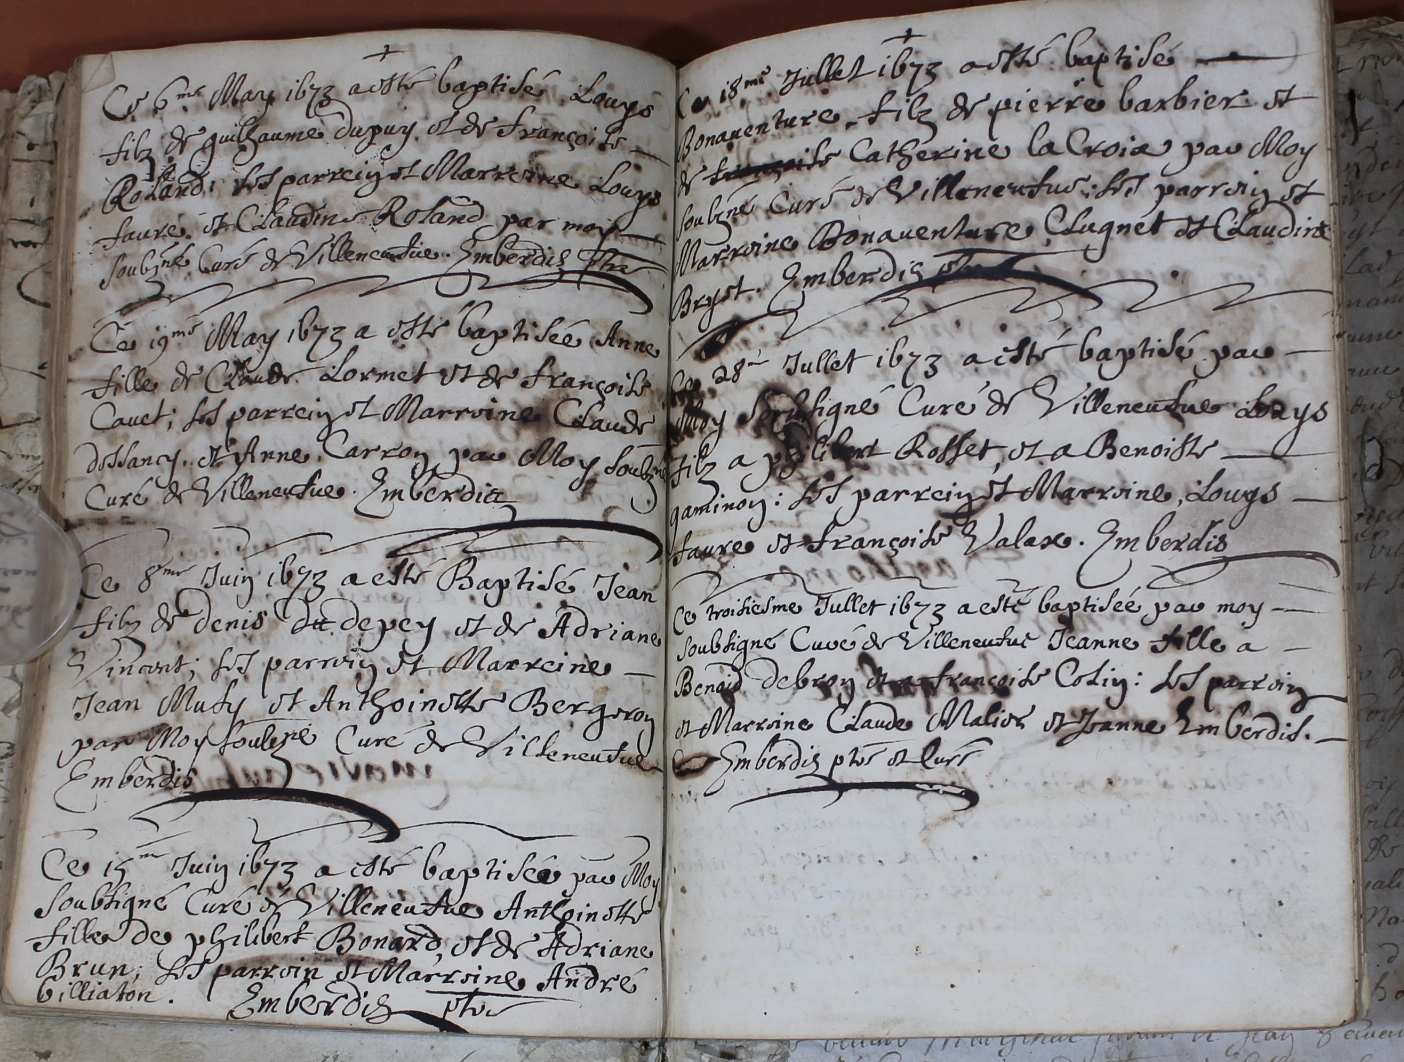 Ce 6me May 1673 a esté baptisé Louys
filz de guilhaume dupuy et de françoise
Roland: les parrein et Marreine Louys
faure et Claudine Roland par moy
soubzné Curé de Villeneufve. Emberdis ptre
Ce 19me May 1673 a esté baptiseé Anne
fille de Claude Lormet et de françoise
Cavet; les parrein et Marreine Claude
dessancy et Anne Carron par Moy soubzné
Curé de Villeneufve. Emberdis
Ce 8me Juin 1673 a esté Baptisé Jean
filz de denis du depey et de Adriane
Vincent; les parrein et Marreine
Jean Mufy et Anthoinette Bergeron
par Moy soubzné Curé de Villeneufve
Emberdis
Ce 15me Juin 1673 a esté baptiseé par Moy
Soubsigné Curé de Villeneufve Anthoinette
fille de philibert Bonard, et de Adriane
Brun; les parrein et Marreine André
billiaton. Emberdis ptre
Ce 18me Jullet 1673 a esté baptisé
Bonaventure filz de pierre barbier et
de Catherine la Croix par Moy
soubzné Curé de Villeneufve: les parrein et
Marreine Bonaventure Clugnet et Claudine
Bryet. Emberdis ptre
Ce 28me Jullet 1673 a esté baptisé par
Moy soubsigné Curé de Villeneufve Louys
filz a philibert Rosset, et a Benoiste
gaminon: les parrein et Marreine, Louys
faure et françoise Valax. Emberdis
Ce troisiesme Jullet 1673 a esté baptiseé par moy
soubsigné Curé de Villeneufve Jeanne fille a
Benoid debron et a françoise Colin: les parrein
et Marreine Claude Malier et Jeanne Emberdis.
Emberdis ptre et Curé